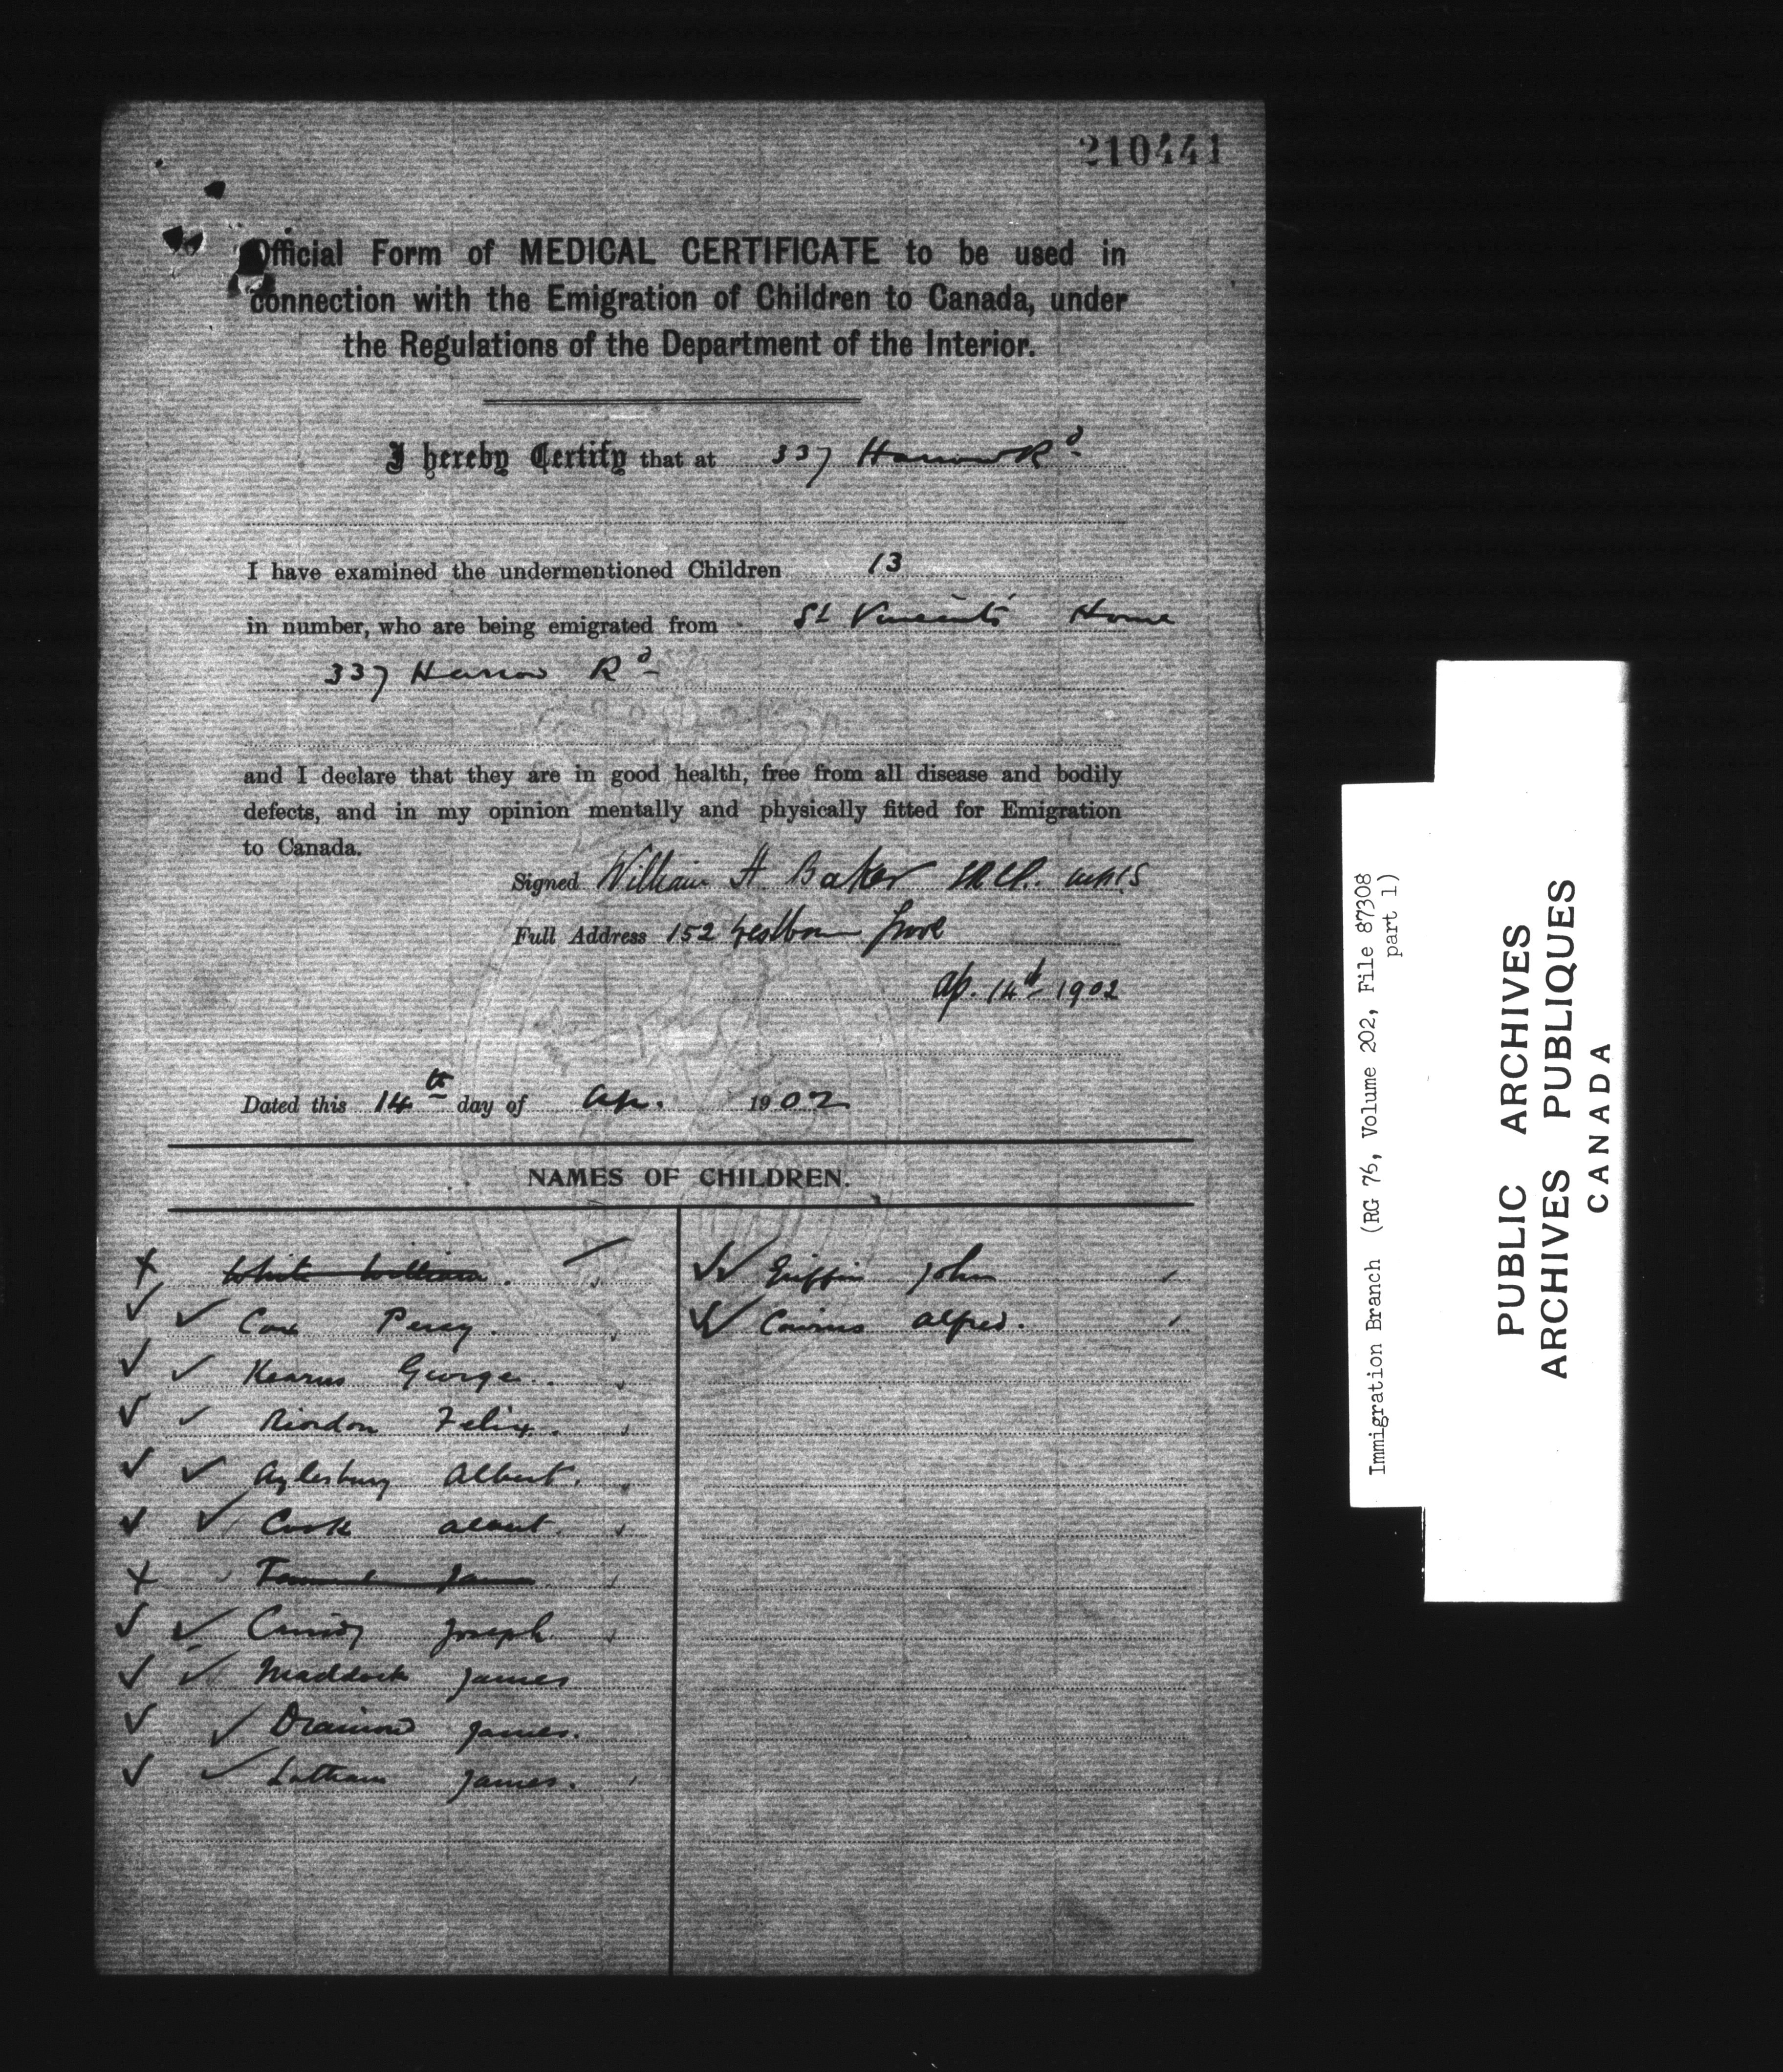 210441
Official Form of MEDICAL CERTIFICATE to be used in
connection with the Emigration of Children to Canada, under
the Regulations of the Department of the Interior.
I hereby Certify that at 337 Harrow Rd
I have examined the undermentioned Children 13
in number, who are being emigrated from St Vincent's Home
337 Harrow Rd
and I declare that they are in good health, free from all disease and bodily
defects, and in my opinion mentally and physically fitted for Emigration
to Canada.
Signed William H. Baker MRCS
Full Address 152 Westbourne Grove
Ap. 14th 1902
Dated this 14th day of Ap. 1902
NAMES OF CHILDREN.
White William.
Cox Percy.
Kearns George.
Riordon Felix.
Aylesbury Albert.
Cook Albert.
Joseph
Maddock James
James.
Latham James.
Griffin John
Alfred.
Immigration Branch (RG 76, Volume 202, File 87308
part 1)
PUBLIC ARCHIVES
ARCHIVES PUBLIQUES
CANADA